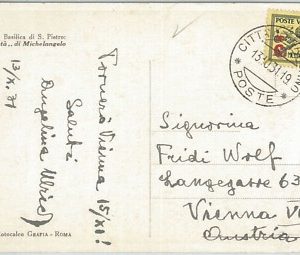 Basilica di S. Pietro:
tà „ di Michelangelo
13/X. 31
Tornerò Vienna 15/XI!
Saluti
Angelina
otocalco GRAFIA - ROMA
CITT
POSTE
Signorina
Fridi Wolf
Langegasse 63
Vienna V
Austria